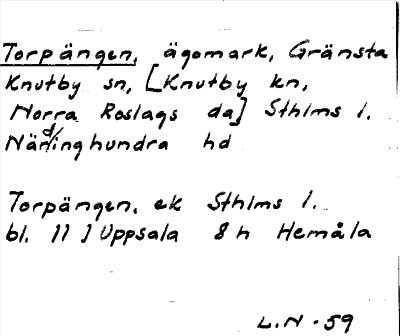 Torpängen, ägomark, Gränsta
Knutby sn, [Knutby kn,
Norra Roslags da] Sthlms l.
Närdinghundra hd
Torpängen. ek Sthlms l.
bl. 11 I Uppsala 8 h Hemåla
L.N - 59